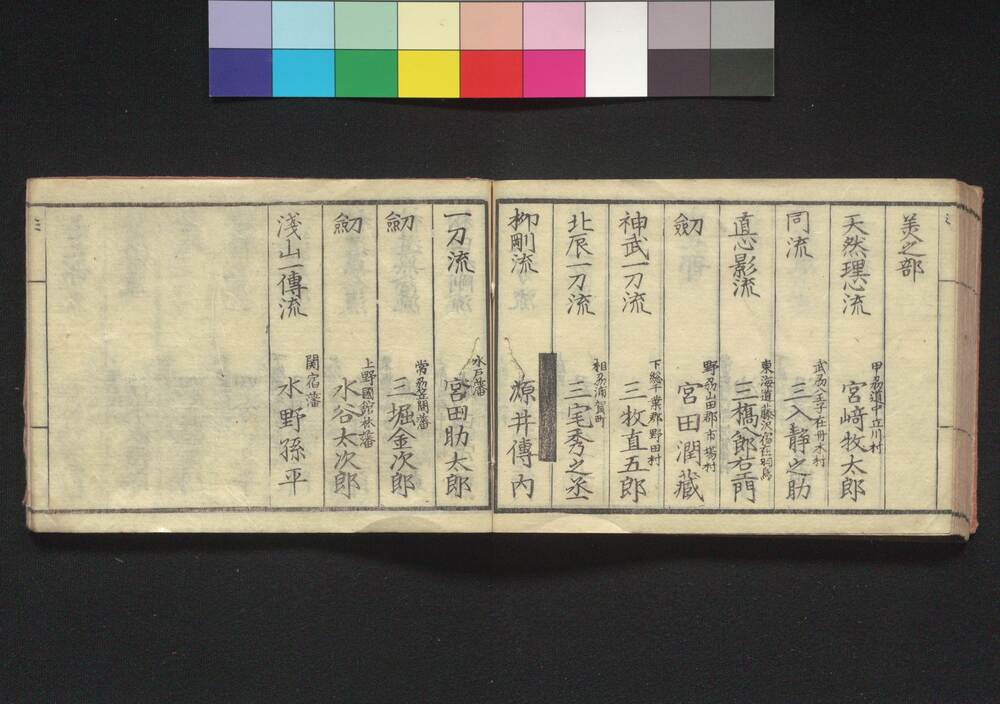 美之部
天然理心流
甲刕道中立川村
宮﨑牧太郎
同流
武刕八王子在丹木村
三入静之助
直心影流
東海道藤沢宿在羽鳥
三觜八郎右エ門
劔
野刕山田郡市場村
宮田潤藏
神武一刀流
下総千葉郡野田村
三牧直五郎
北辰一刀流
相刕浦賀町
三宅秀之丞
柳剛流
源井傳内
一刀流
水戸藩
宮田助太郎
劔
常刕笠間藩
三堀金次郎
劔
上野國舘林藩
水谷太次郎
浅山一傳流
関宿藩
水野孫平